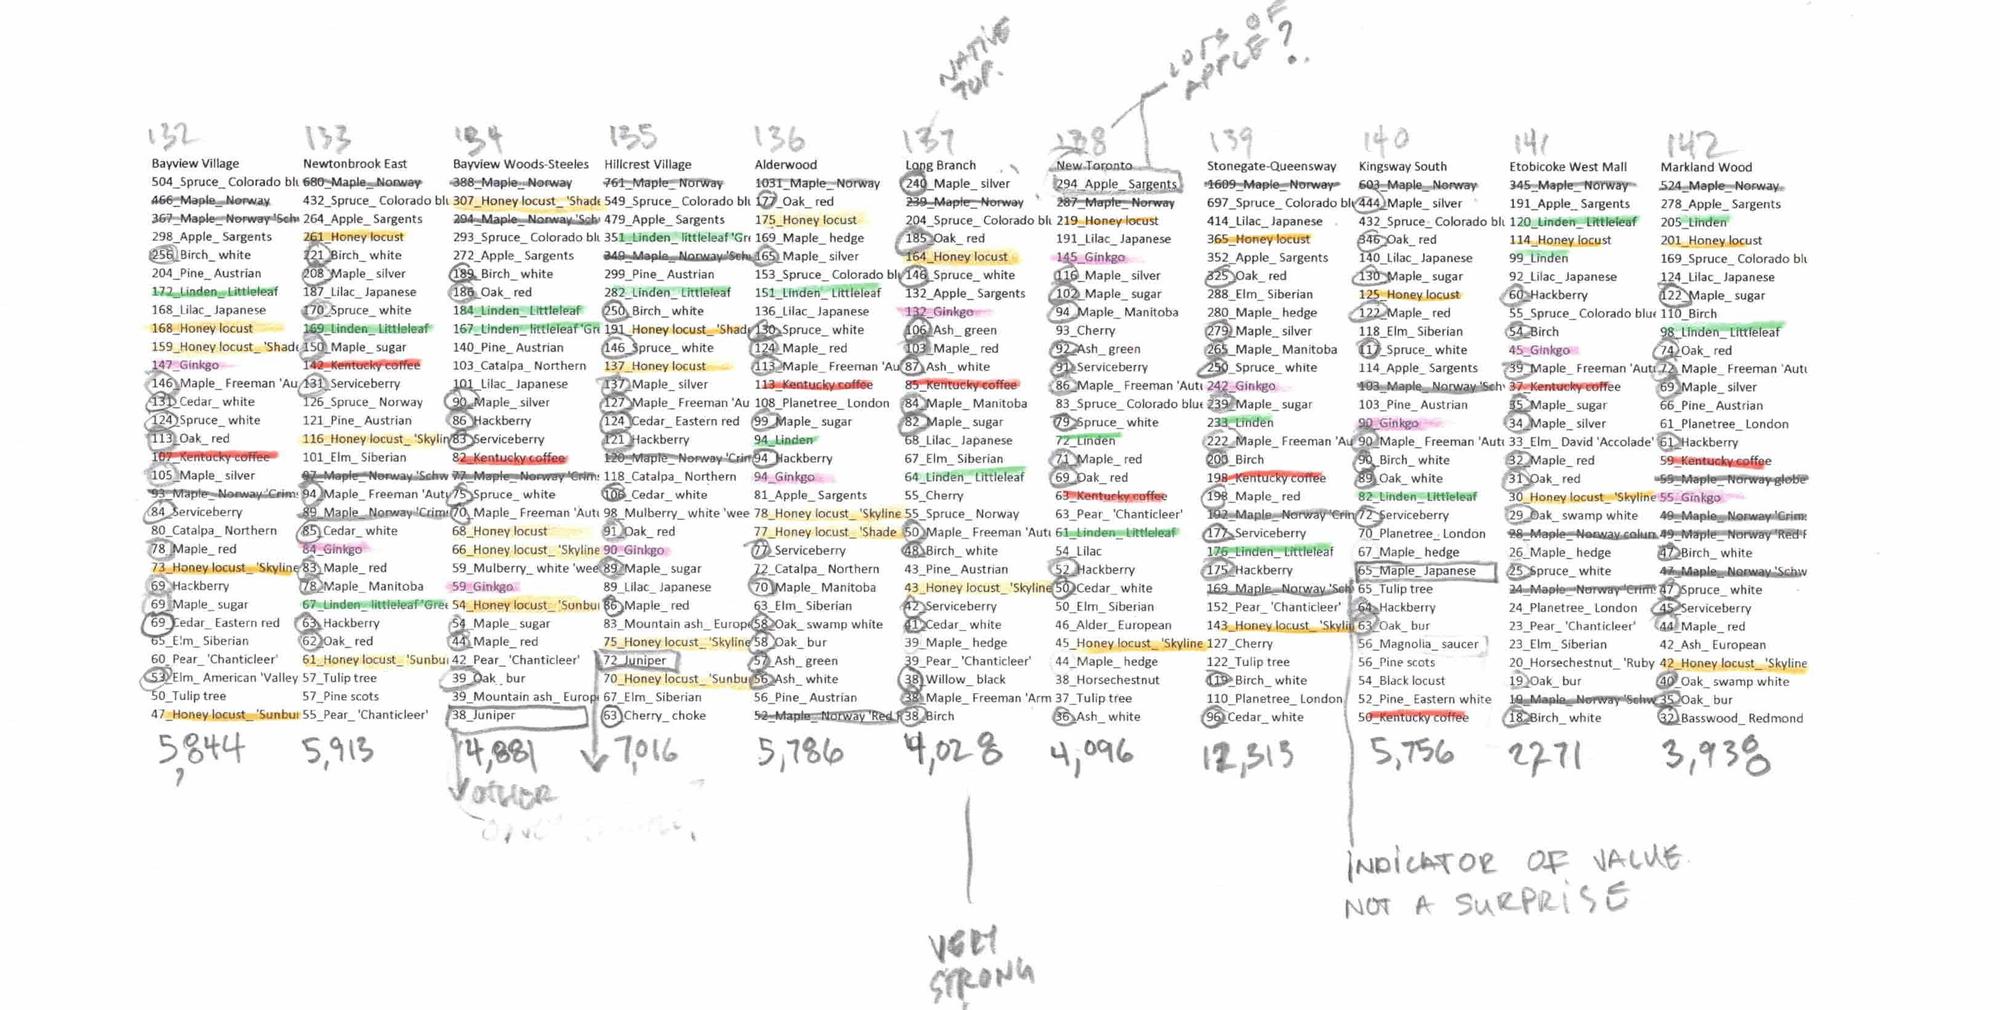 NATIVE
TOP.
LOTS OF
APPLE?
132
Bayview Village
504_Spruce_ Colorado blu
466_Maple_ Norway
367_Maple_ Norway 'Sch
298_Apple_ Sargents
256_Birch_ white
204_Pine_ Austrian
172_Linden_ Littleleaf
168_Lilac_ Japanese
168_Honey locust
159_Honey locust_ 'Shade
147_Ginkgo
146_Maple_ Freeman 'Au
131_Cedar_ white
124_Spruce_ white
113_Oak_ red
107_Kentucky coffee
105_Maple_ silver
93_Maple_ Norway 'Crim
84_Serviceberry
80_Catalpa_ Northern
78_Maple_ red
73_Honey locust_ 'Skyline
69_Hackberry
69_Maple_ sugar
69_Cedar_ Eastern red
65_Elm_ Siberian
60_Pear_ 'Chanticleer'
53_Elm_ American 'Valley
50_Tulip tree
47_Honey locust_ 'Sunbu
5,844
133
Newtonbrook East
680_Maple_ Norway
432_Spruce_ Colorado blu
264_Apple_ Sargents
261_Honey locust
221_Birch_ white
208_Maple_ silver
187_Lilac_ Japanese
170_Spruce_ white
169_Linden_ Littleleaf
150_Maple_ sugar
142_Kentucky coffee
131_Serviceberry
126_Spruce_ Norway
121_Pine_ Austrian
116_Honey locust_ 'Skylin
101_Elm_ Siberian
97_Maple_ Norway 'Schw
94_Maple_ Freeman 'Aut
89_Maple_ Norway 'Crim
85_Cedar_ white
84_Ginkgo
83_Maple_ red
78_Maple_ Manitoba
67_Linden_ littleleaf 'Gree
63_Hackberry
62_Oak_ red
61_Honey locust_ 'Sunbu
57_Tulip tree
57_Pine scots
55_Pear_ 'Chanticleer'
5,913
134
Bayview Woods-Steeles
388_Maple_ Norway
307_Honey locust_ 'Shade
294_Maple_ Norway 'Sch
293_Spruce_ Colorado blu
272_Apple_ Sargents
189_Birch_ white
186_Oak_ red
184_Linden_ Littleleaf
167_Linden_ littleleaf 'Gr
140_Pine_ Austrian
103_Catalpa_ Northern
101_Lilac_ Japanese
90_Maple_ silver
86_Hackberry
83_Serviceberry
82_Kentucky coffee
77_Maple_ Norway 'Crim
75_Spruce_ white
70_Maple_ Freeman 'Aut
68_Honey locust
66_Honey locust_ 'Skyline
59_Mulberry_ white 'wee
59_Ginkgo
54_Honey locust_ 'Sunbu
54_Maple_ sugar
44_Maple_ red
42_Pear_ 'Chanticleer'
39_Oak_ bur
39_Mountain ash_ Europ
38_Juniper
4,881
OTHER
135
Hillcrest Village
761_Maple_ Norway
549_Spruce_ Colorado blu
479_Apple_ Sargents
351_Linden_ littleleaf 'Gr
349_Maple_ Norway 'Sch
299_Pine_ Austrian
282_Linden_ Littleleaf
250_Birch_ white
191_Honey locust_ 'Shad
146_Spruce_ white
137_Honey locust
137_Maple_ silver
127_Maple_ Freeman 'Au
124_Cedar_ Eastern red
121_Hackberry
120_Maple_ Norway 'Crim
118_Catalpa_ Northern
106_Cedar_ white
98_Mulberry_ white 'wee
91_Oak_ red
90_Ginkgo
89_Maple_ sugar
89_Lilac_ Japanese
86_Maple_ red
83_Mountain ash_ Europ
75_Honey locust_ 'Skyline
72_Juniper
70_Honey locust_ 'Sunbu
67_Elm_ Siberian
63_Cherry_ choke
7,016
136
Alderwood
1031_Maple_ Norway
177_Oak_ red
175_Honey locust
169_Maple_ hedge
165_Maple_ silver
153_Spruce_ Colorado blu
151_Linden_ Littleleaf
136_Lilac_ Japanese
130_Spruce_ white
124_Maple_ red
113_Maple_ Freeman 'Au
113_Kentucky coffee
108_Planetree_ London
99_Maple_ sugar
94_Linden
94_Hackberry
94_Ginkgo
81_Apple_ Sargents
78_Honey locust_ 'Skyline
77_Honey locust_ 'Shade
77_Serviceberry
72_Catalpa_ Northern
70_Maple_ Manitoba
63_Elm_ Siberian
58_Oak_ swamp white
58_Oak_ bur
57_Ash_ green
56_Ash_ white
56_Pine_ Austrian
52_Maple_ Norway 'Red
5,786
137
Long Branch
240_Maple_ silver
239_Maple_ Norway
204_Spruce_ Colorado blu
185_Oak_ red
164_Honey locust
146_Spruce_ white
132_Apple_ Sargents
132_Ginkgo
106_Ash_ green
103_Maple_ red
87_Ash_ white
85_Kentucky coffee
84_Maple_ Manitoba
82_Maple_ sugar
68_Lilac_ Japanese
67_Elm_ Siberian
64_Linden_ Littleleaf
55_Cherry
55_Spruce_ Norway
50_Maple_ Freeman 'Aut
48_Birch_ white
43_Pine_ Austrian
43_Honey locust_ 'Skyline
42_Serviceberry
41_Cedar_ white
39_Maple_ hedge
39_Pear_ 'Chanticleer'
38_Willow_ black
38_Maple_ Freeman 'Arm
38_Birch
4,028
VERY
STRONG
138
New Toronto
294_Apple_ Sargents
287_Maple_ Norway
219_Honey locust
191_Lilac_ Japanese
145_Ginkgo
116_Maple_ silver
102_Maple_ sugar
94_Maple_ Manitoba
93_Cherry
92_Ash_ green
91_Serviceberry
86_Maple_ Freeman 'Aut
83_Spruce_ Colorado blue
79_Spruce_ white
72_Linden
71_Maple_ red
69_Oak_ red
63_Kentucky coffee
63_Pear_ 'Chanticleer'
61_Linden_ Littleleaf
54_Lilac
52_Hackberry
50_Cedar_ white
50_Elm_ Siberian
46_Alder_ European
45_Honey locust_ 'Skyline
44_Maple_ hedge
38_Horsechestnut
37_Tulip tree
36_Ash_ white
4,096
139
Stonegate-Queensway
1609_Maple_ Norway
697_Spruce_ Colorado blu
414_Lilac_ Japanese
365_Honey locust
352_Apple_ Sargents
325_Oak_ red
288_Elm_ Siberian
280_Maple_ hedge
279_Maple_ silver
265_Maple_ Manitoba
250_Spruce_ white
242_Ginkgo
239_Maple_ sugar
233_Linden
222_Maple_ Freeman 'Au
200_Birch
198_Kentucky coffee
198_Maple_ red
192_Maple_ Norway 'Crin
177_Serviceberry
176_Linden_ Littleleaf
175_Hackberry
169_Maple_ Norway 'Sch
152_Pear_ 'Chanticleer'
143_Honey locust_ 'Skylin
127_Cherry
122_Tulip tree
119_Birch_ white
110_Planetree_ London
96_Cedar_ white
12,313
140
Kingsway South
603_Maple_ Norway
444_Maple_ silver
432_Spruce_ Colorado blu
346_Oak_ red
140_Lilac_ Japanese
130_Maple_ sugar
125_Honey locust
122_Maple_ red
118_Elm_ Siberian
117_Spruce_ white
114_Apple_ Sargents
103_Maple_ Norway 'Sch
103_Pine_ Austrian
90_Ginkgo
90_Maple_ Freeman 'Aut
90_Birch_ white
89_Oak_ white
82_Linden_ Littleleaf
72_Serviceberry
70_Planetree_ London
67_Maple_ hedge
65_Maple_ Japanese
65_Tulip tree
64_Hackberry
63_Oak_ bur
56_Magnolia_ saucer
56_Pine scots
54_Black locust
52_Pine_ Eastern white
50_Kentucky coffee
5,756
INDICATOR OF VALUE
NOT A SURPRISE
141
Etobicoke West Mall
345_Maple_ Norway
191_Apple_ Sargents
120_Linden_ Littleleaf
114_Honey locust
99_Linden
92_Lilac_ Japanese
60_Hackberry
55_Spruce_ Colorado blue
54_Birch
45_Ginkgo
39_Maple_ Freeman 'Aut
37_Kentucky coffee
35_Maple_ sugar
34_Maple_ silver
33_Elm_ David 'Accolade'
32_Maple_ red
31_Oak_ red
30_Honey locust_ 'Skyline
29_Oak_ swamp white
28_Maple_ Norway colum
26_Maple_ hedge
25_Spruce_ white
24_Maple_ Norway 'Crim
24_Planetree_ London
23_Pear_ 'Chanticleer'
23_Elm_ Siberian
20_Horsechestnut_ 'Ruby
19_Oak_ bur
19_Maple_ Norway 'Schw
18_Birch_ white
2,271
142
Markland Wood
524_Maple_ Norway
278_Apple_ Sargents
205_Linden
201_Honey locust
169_Spruce_ Colorado blu
124_Lilac_ Japanese
122_Maple_ sugar
110_Birch
98_Linden_ Littleleaf
74_Oak_ red
72_Maple_ Freeman 'Aut
69_Maple_ silver
66_Pine_ Austrian
61_Planetree_ London
61_Hackberry
59_Kentucky coffee
55_Maple_ Norway globe
55_Ginkgo
49_Maple_ Norway 'Crim
49_Maple_ Norway 'Red F
47_Birch_ white
47_Maple_ Norway 'Schw
47_Spruce_ white
45_Serviceberry
44_Maple_ red
42_Ash_ European
42_Honey locust_ 'Skyline
40_Oak_ swamp white
35_Oak_ bur
32_Basswood_ Redmond
3,938